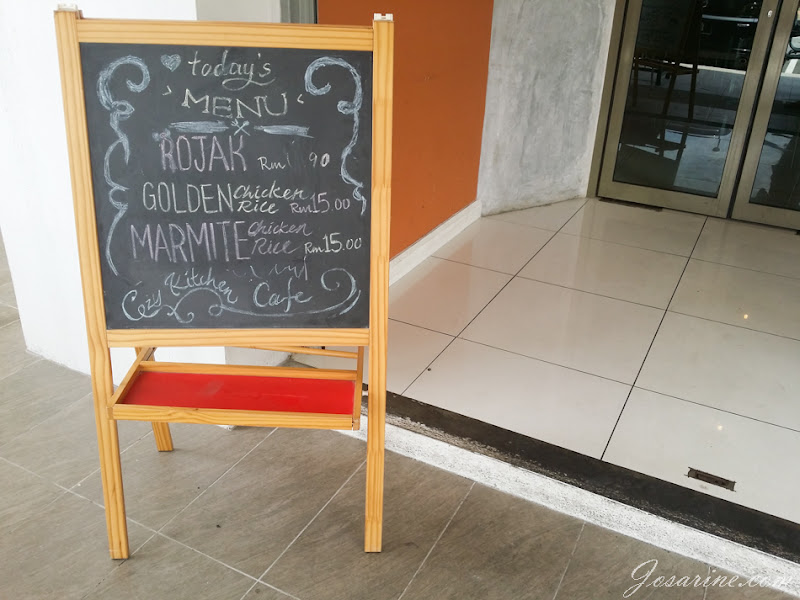 today's
MENU
ROJAK Rm 90
GOLDEN Chicken Rice Rm 15.00
MARMITE Chicken Rice Rm 15.00
Cozy Kitchen Cafe
Josarine.com